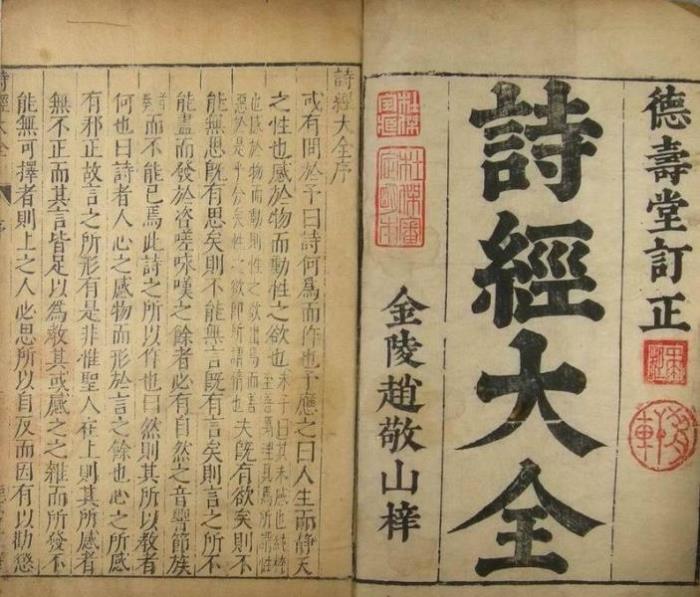 德壽堂訂正
詩經大全
金陵趙敬山梓
詩經大全序
或有問於予曰詩何爲而作也予應之曰人生而靜天
之性也感於物而動性之欲也朱子曰其未感也純粹
至善萬理具焉所謂性
也感於物而動則性之欲出焉而善
惡於是乎分矣性之欲即所謂情也夫既有欲矣則不
能無思既有思矣則不能無言既有言矣則言之所不
能盡而發於咨嗟咏嘆之餘者必有自然之音響節族
而不能已焉此詩之所以作也曰然則其所以教者
何也曰詩者人心之感物而形於言之餘也心之所感
有邪正故言之所形有是非惟聖人在上則其所感者
無不正而其言皆足以為教其或感之之雜而所發不
能無可擇者則上之人必思所以自反而因有以勸懲
詩經大全 序